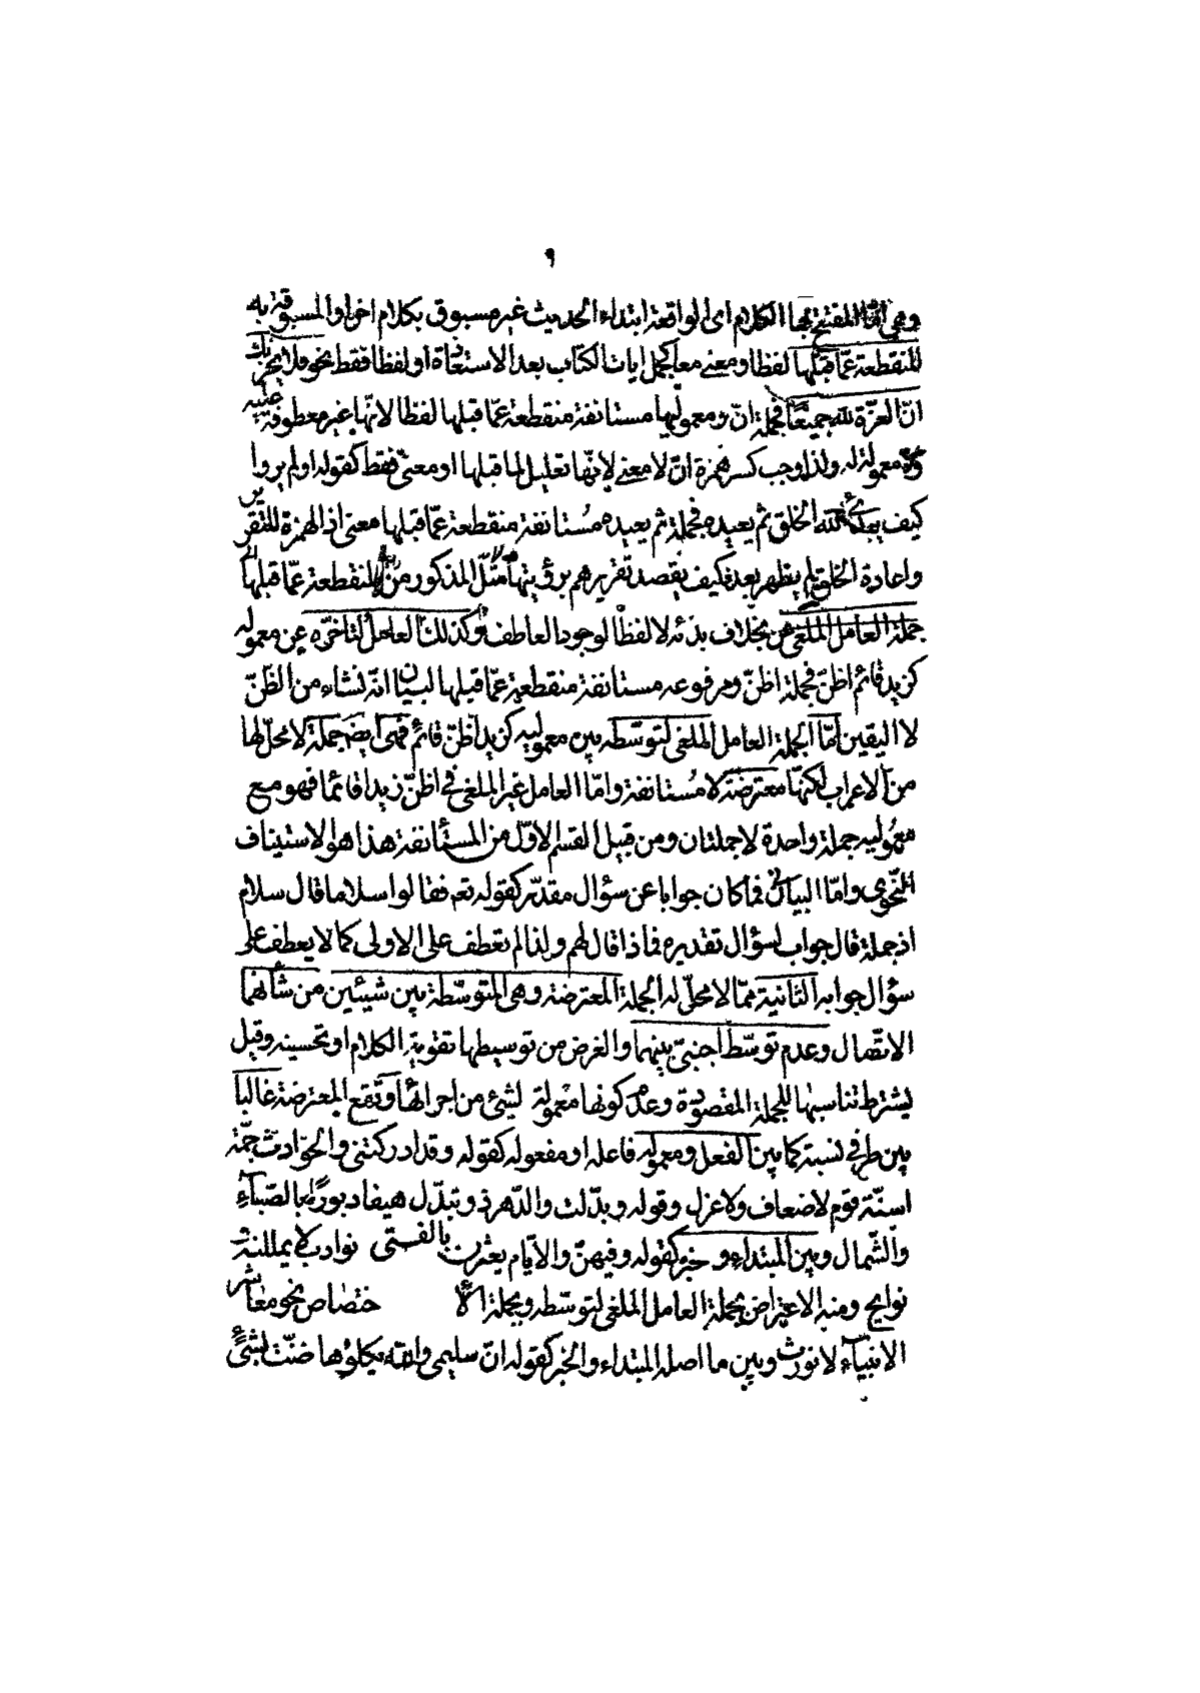 ٩
وهي امّا المفتتح بها الكلام اى الواقعة ابتداء الحديث غير مسبوق بكلام اخر او المسبوقة به
المنقطعة عمّا قبلها لفظا ومعنى معا كجمل ايات الكتاب بعد الاستعاذة او لفظا فقط نحو فلا يحزنك
انّ العزّة لله جميعًا فجملة انّ ومعموليها مستانفة منقطعة عمّا قبلها لفظا لانّها غير معطوفة عليه
ولا معمولة له ولذا وجب كسر همزة انّ لا معنى لانّها تعليل لما قبلها او معنى فقط كقوله اولم يروا
كيف يبدئ الله الخلق ثم يعيده فجملة ثم يعيده مُستانفة منقطعة عمّا قبلها معنى اذ الهمزة للتقرير
واعادة الخلق لم يظهر بعد فكيف يقصد تقريرهم برؤيتها مثل المذكور من المنقطعة عمّا قبلها
جملة العامل الملغى عن بخلاف بدئه لا لفظا لوجود العاطف وكذلك العامل لتاخّره عن معموله
كزيد قائم اظنّ فجملة اظنّ ومرفوعه مستانفة منقطعة عمّا قبلها لبيان انّه نشاء من الظّنّ
لا اليقين امّا الجملة العامل الملغى لتوسّطه بين معموليه كزيد اظنّ قائم فهى ايضه جملة لا محلّ لها
من الاعراب لكنّها معترضة لا مُستانفة وامّا العامل غير الملغى فى اظنّ زيدا قائما فهو مع
معموليه جملة واحدة لا جملتان ومن قبيل القسم الاوّل من المستأنفة هذا هو الاستيناف
النّحوى وامّا البيانى فما كان جوابا عن سؤال مقدّر كقوله تعم فقالوا سلاما قال سلام
اذ جملة قال جواب لسؤال تقديره فماذا قال لهم ولذا لم تعطف على الاولى كما لا يعطف على
سؤال جوابه الثانية ممّا لا محلّ له الجملة المعترضة وهى المتوسّطة بين شيئين من شأنهما
الاتّصال وعدم توسّط اجنبىّ بينهما والغرض من توسيطها تقوية الكلام او تحسينه وقيل
يشترط تناسبها للجملة المقصودة وعدم كونها معمولة لشئ من اجزائها وتقع المعترضة غالبا
بين طرفى نسبة كما بين الفعل ومعموله فاعله او مفعوله كقوله وقد ادركتنى والحوادث جمّة
اسنّة قوم لا ضعاف ولا عزل وقوله وبدّلت والدّهر ذو تبدّل هيفا دبورًا بالصّباء
والشّمال وبين المبتداء و خبره كقوله وفيهنّ والايّام يعثرن بالفتى نوادب لا يمللنه
نوايح ومنه الاعتراض بجملة العامل الملغى لتوسّطه وبجملة الا ختصاص نحو معاشر
الانبياء لا نورث وبين ما اصله المبتداء والخبر كقوله انّ سليمى والله يكلؤها ضنّت بشئ